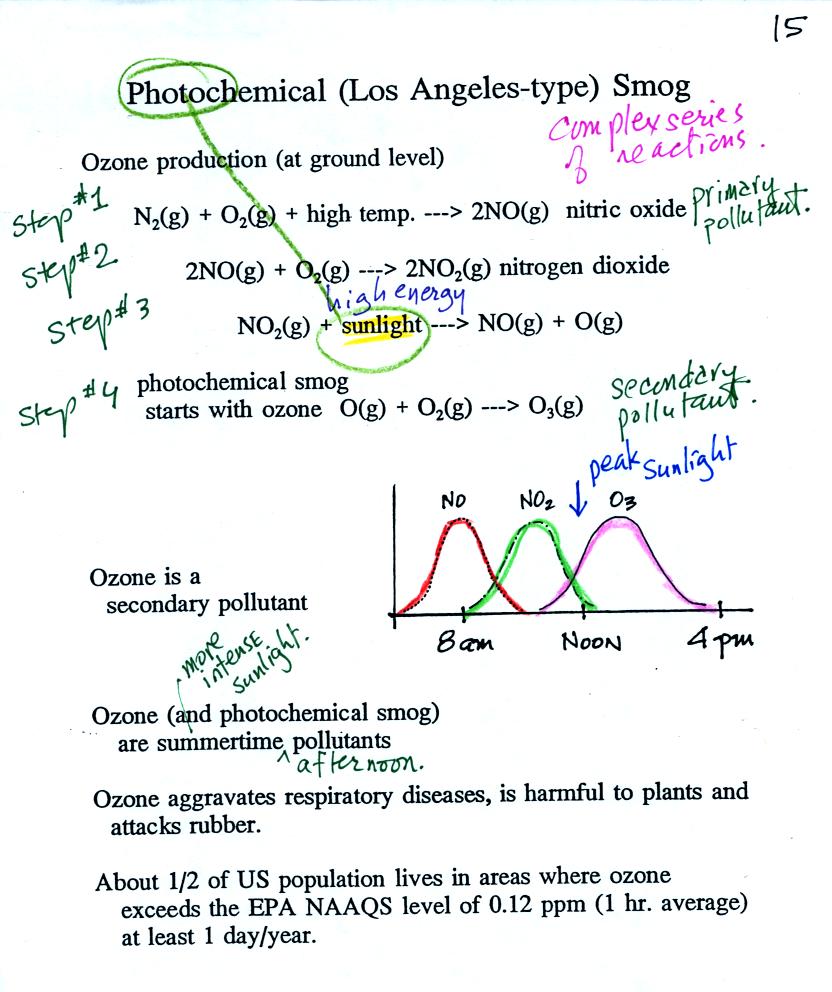 15
Photochemical (Los Angeles-type) Smog
Complex series
of reactions.
Ozone production (at ground level)
Step #1 N₂(g) + O₂(g) + high temp. ---> 2NO(g) nitric oxide primary pollutant.
Step #2 2NO(g) + O₂(g) ---> 2NO₂(g) nitrogen dioxide
high energy
Step #3 NO₂(g) + sunlight ---> NO(g) + O(g)
Step #4 photochemical smog
starts with ozone O(g) + O₂(g) ---> O₃(g)
secondary
pollutant.
peak sunlight
NO NO₂ O₃
Ozone is a
secondary pollutant
8am NOON 4pm
more
intense
sunlight.
Ozone (and photochemical smog)
are summertime pollutants
^ afternoon.
Ozone aggravates respiratory diseases, is harmful to plants and
attacks rubber.
About 1/2 of US population lives in areas where ozone
exceeds the EPA NAAQS level of 0.12 ppm (1 hr. average)
at least 1 day/year.